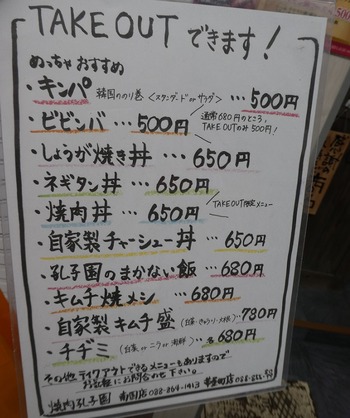 TAKE OUT できます!
めっちゃおすすめ
・キンパ 韓国ののり巻 <スタンダード or サラダ> … 500円
・ビビンバ … 500円 通常680円のところ、
TAKE OUTのみ 500円!
・しょうが焼き丼 … 650円
・ネギタン丼 … 650円
・焼肉丼 … 650円 TAKE OUT限定メニュー
・自家製チャーシュー丼 … 650円
・孔子園のまかない飯 … 680円
・キムチ焼メシ … 680円
・自家製キムチ盛 (白菜・きゅうり・大根) … 780円
・チヂミ (白菜 or ニラ or 海鮮) … 各680円
その他テイクアウトできるメニューもありますので
お気軽にお問合わせ下さい。
焼肉孔子園 南国店 088-864-1913